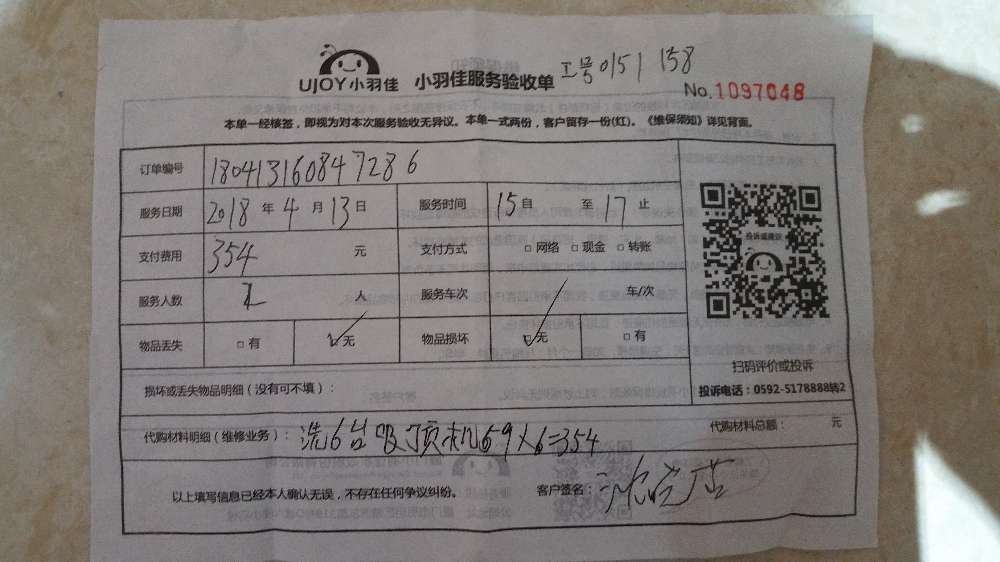 UJOY小羽佳 小羽佳服务验收单 工号0151158
No.1097048
本单一经核签，即视为对本次服务验收无异议。本单一式两份，客户留存一份(红)。《维保须知》详见背面。
订单编号 180413160847286
服务日期 2018 年 4 月 13 日 服务时间 15 自 至 17 止
支付费用 354 元 支付方式 □ 网络 □ 现金 □ 转账
投诉或建议
服务人数 人 服务车次 车/次
物品丢失 □ 有 ☑ 无 物品损坏 ☑ 无
扫码评价或投诉
损坏或丢失物品明细（没有可不填）：
投诉电话：0592-5178888转2
代购材料明细（维修业务）：洗6台吸顶机59×6=354 代购材料总额： 元
以上填写信息已经本人确认无误，不存在任何争议纠纷。 客户签名：